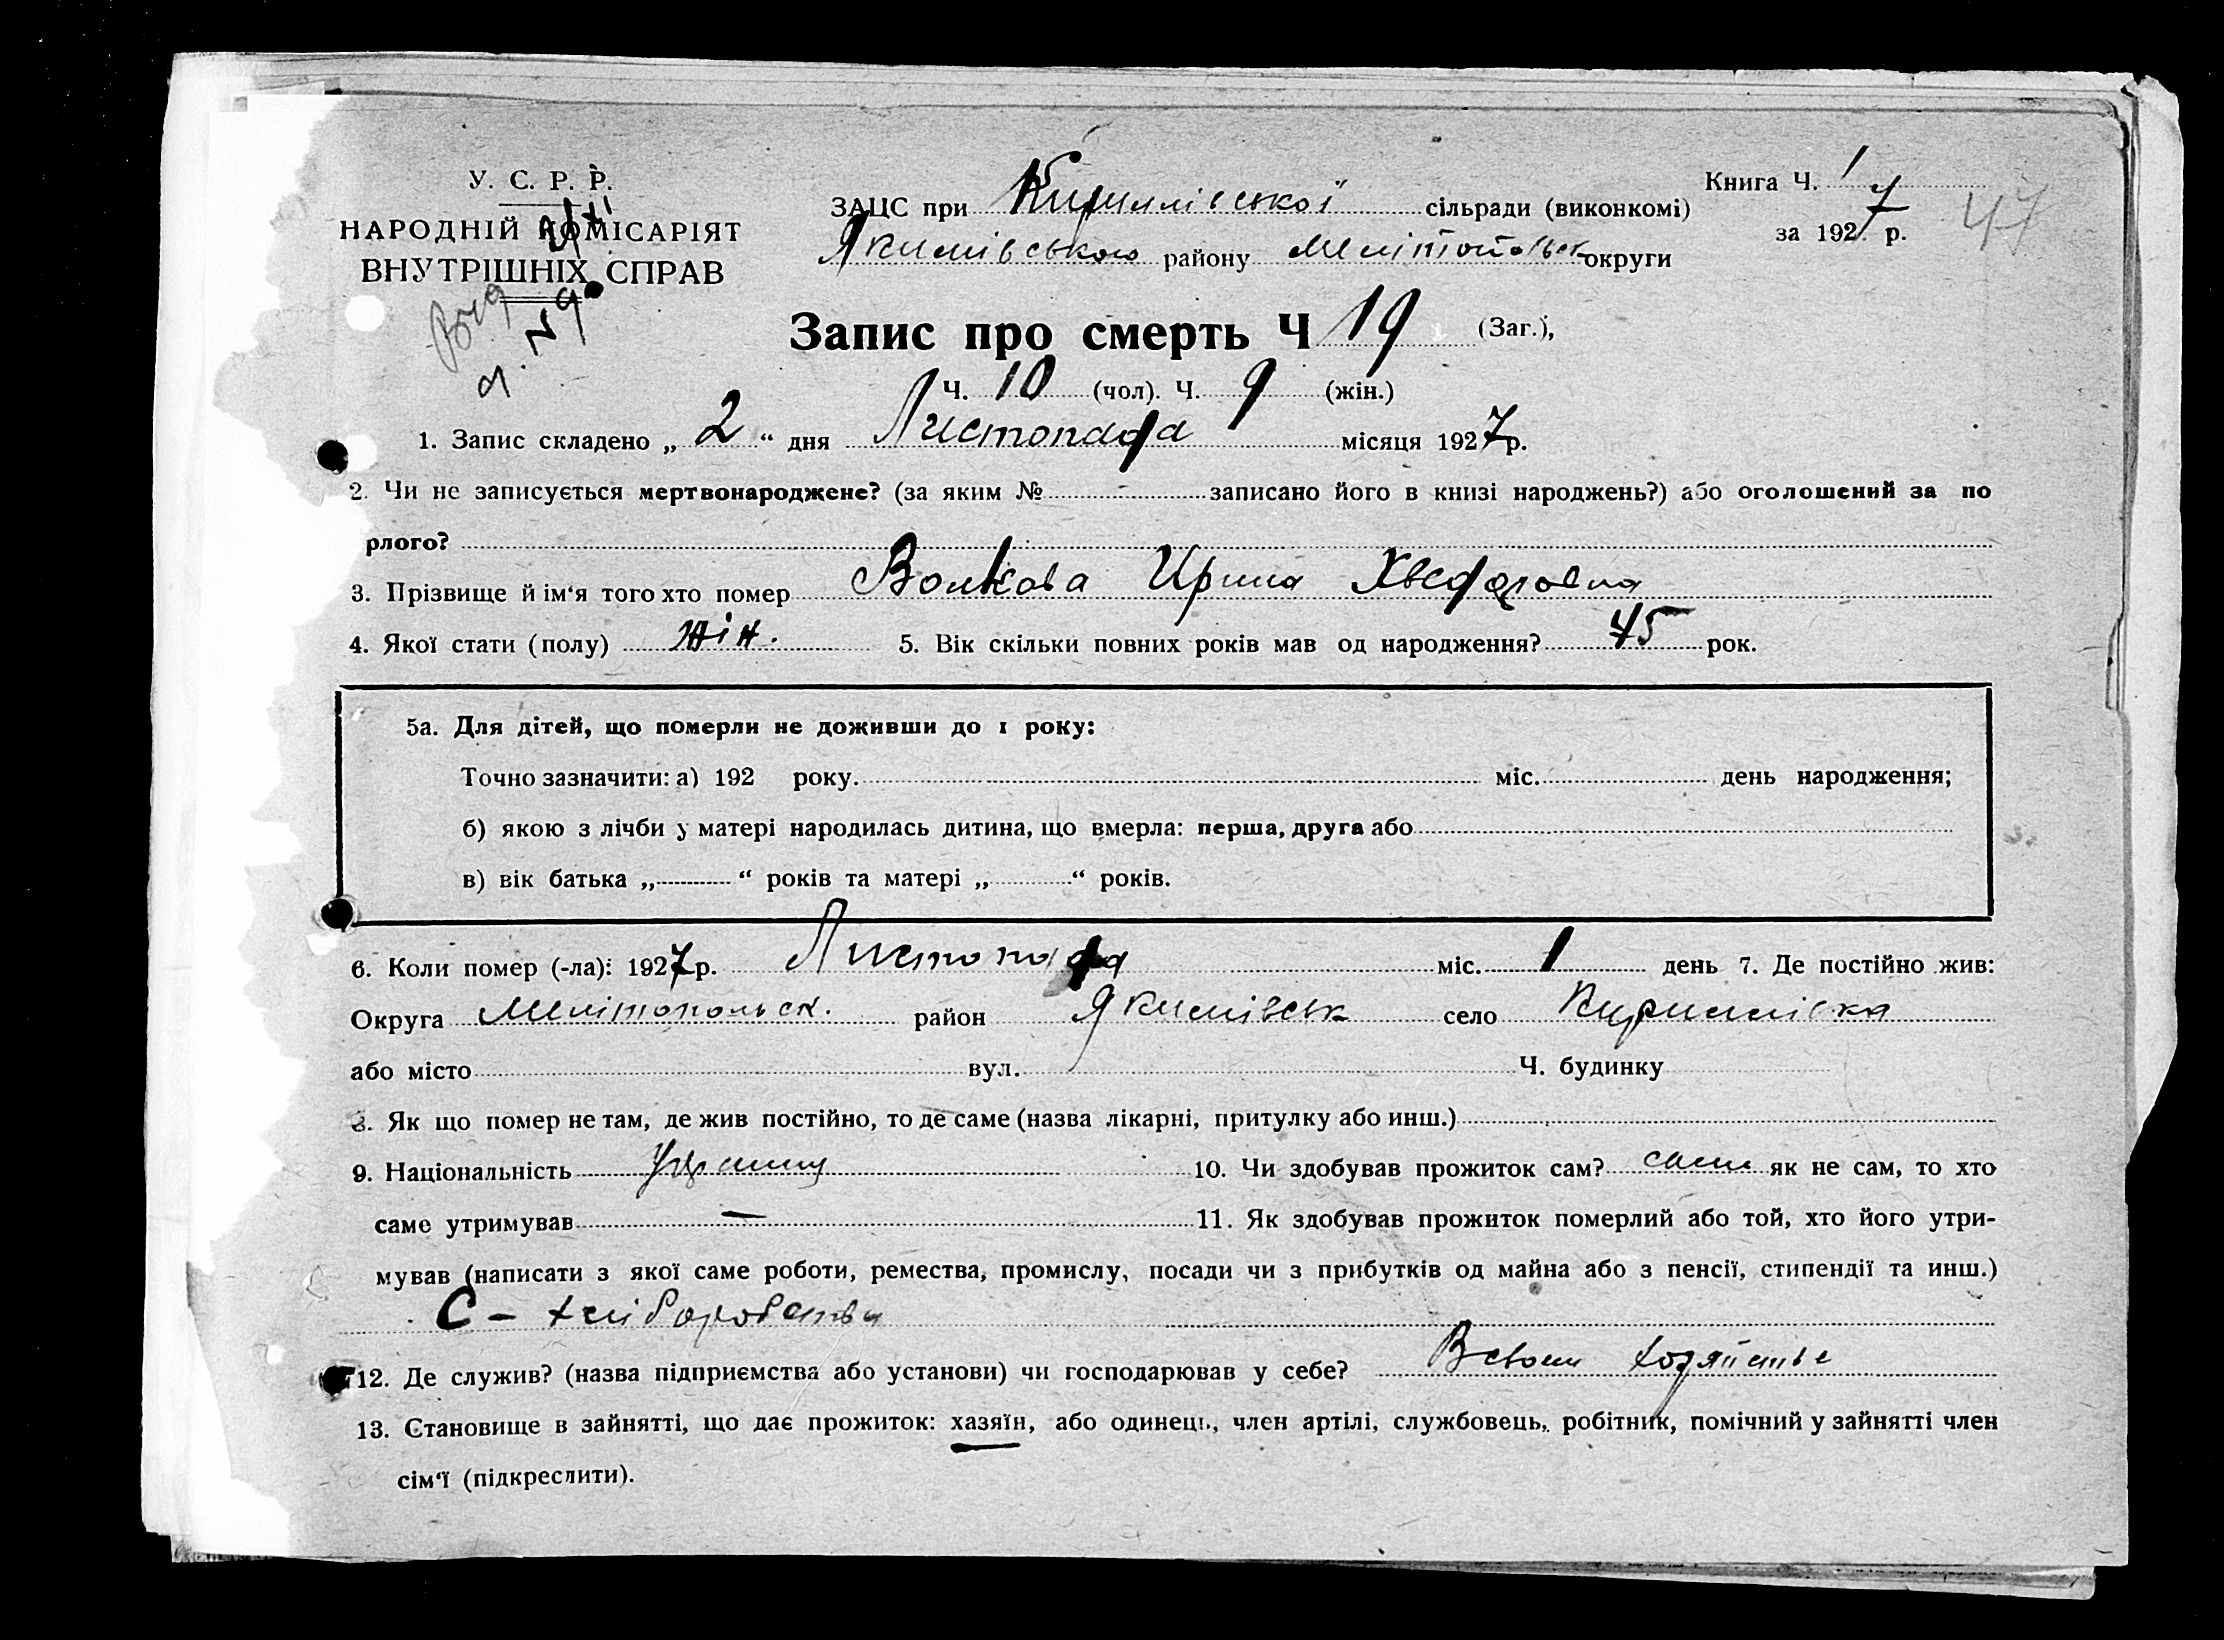 У. С. Р. Р.
НАРОДНІЙ КОМІСАРІЯТ
ВНУТРІШНІХ СПРАВ
ЗАЦС при Кириллівської сільради (виконкомі)
Якимівського району Мелітопольськ округи
Книга Ч. 1
за 1927 р.
47
Запис про смерть Ч 19 (Заг.),
Ч. 10 (чол). Ч. 9 (жін.)
1. Запис складено „ 2 “ дня Листопада місяця 1927 р.
2. Чи не записується мертвонароджене? (за яким № - записано його в книзі народжень?) або оголошений за по
рлого?
3. Прізвище й ім‘я того хто помер Волкова Ирина Хведоровна
4. Якої стати (полу) жін. 5. Вік скільки повних років мав од народження? 45 рок.
5а. Для дітей, що померли не доживши до 1 року:
Точно зазначити: а) 192 року. міс. день народження;
б) якою з лічби у матері народилась дитина, що вмерла: перша, друга або
в) вік батька „ “ років та матері „ “ років.
6. Коли помер (-ла): 1927 р. Листопада міс. 1 день 7. Де постійно жив:
Округа Мелітопольск. район Якимівськ село Кириллівка
або місто вул. Ч. будинку
8. Як що помер не там, де жив постійно, то де саме (назва лікарні, притулку або инш.)
9. Національність 10. Чи здобував прожиток сам? сама як не сам, то хто
саме утримував — 11. Як здобував прожиток померлий або той, хто його утри-
мував (написати з якої саме роботи, ремества, промислу, посади чи з прибутків од майна або з пенсії, стипендії та инш.)
С - хліборобства
12. Де служив? (назва підприємства або установи) чи господарював у себе? В своем хозяйстве
13. Становище в зайнятті, що дає прожиток: хазяїн, або одинець, член артілі, службовець, робітник, помічний у зайнятті член
сім‘ї (підкреслити).